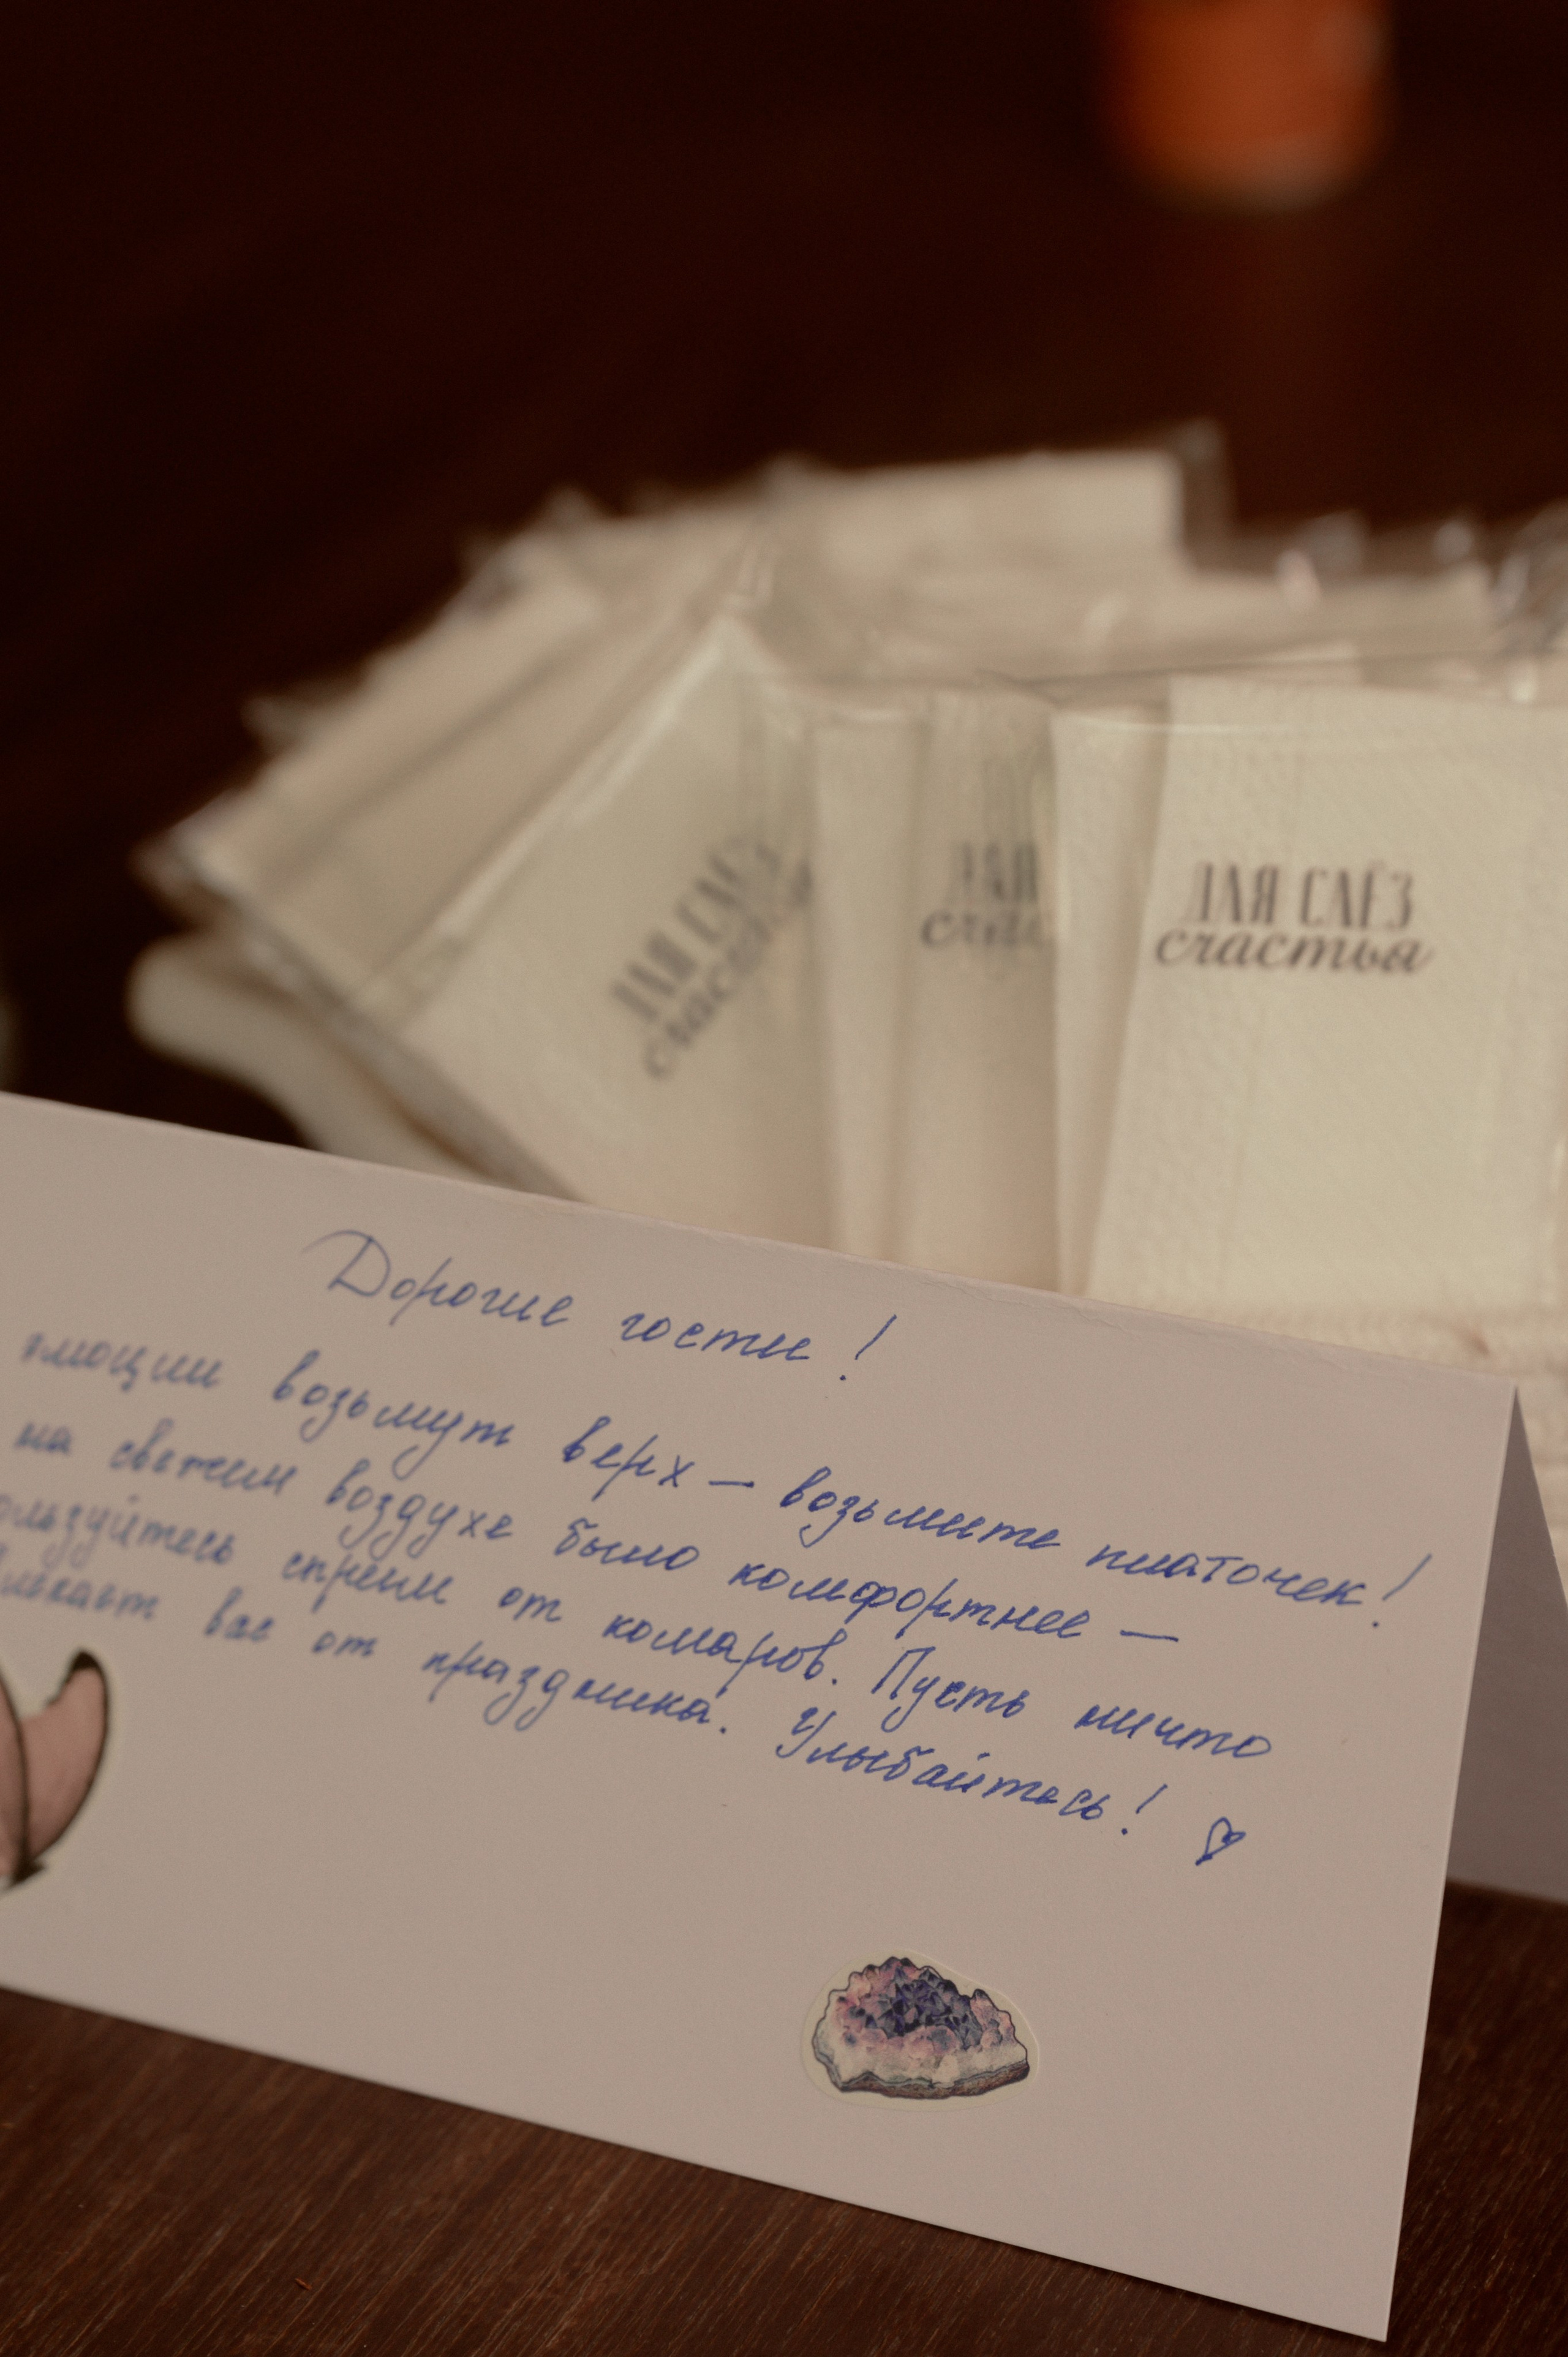 ДЛЯ СЛЁЗ
счастья
ДЛЯ
ДЛЯ СЛЁЗ
счастья
Дорогие гости!
эмоции возьмут верх — возьмите платочек!
на свежем воздухе было комфортнее —
ользуйтесь спреем от комаров. Пусть ничто
влекает вас от праздника. Улыбайтесь! ♡